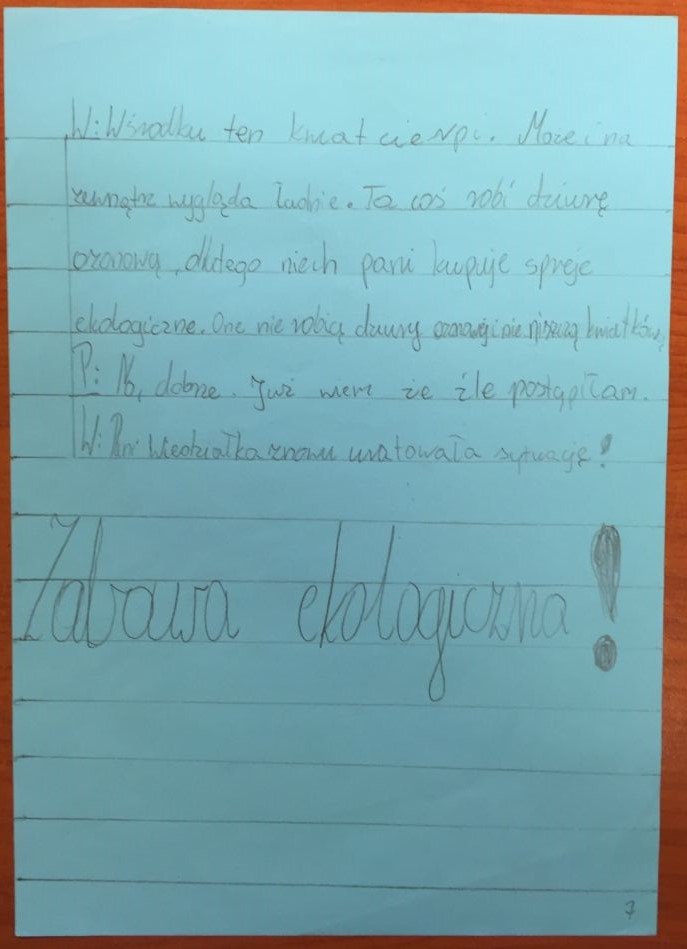 W: Wśrodku ten kwiat cierpi. Może i na
zewnątrz wygląda ładnie. To coś robi dziurę
ozonową, dlatego niech pani kupuje spreje
ekologiczne. One nie robią dziury ozonowej i nie niszczą kwiatków.
P: No, dobrze. Już wiem że źle postąpiłam.
W: Pani Wiedziałka znowu uratowała sytuację!
Zabawa ekologiczna!
7